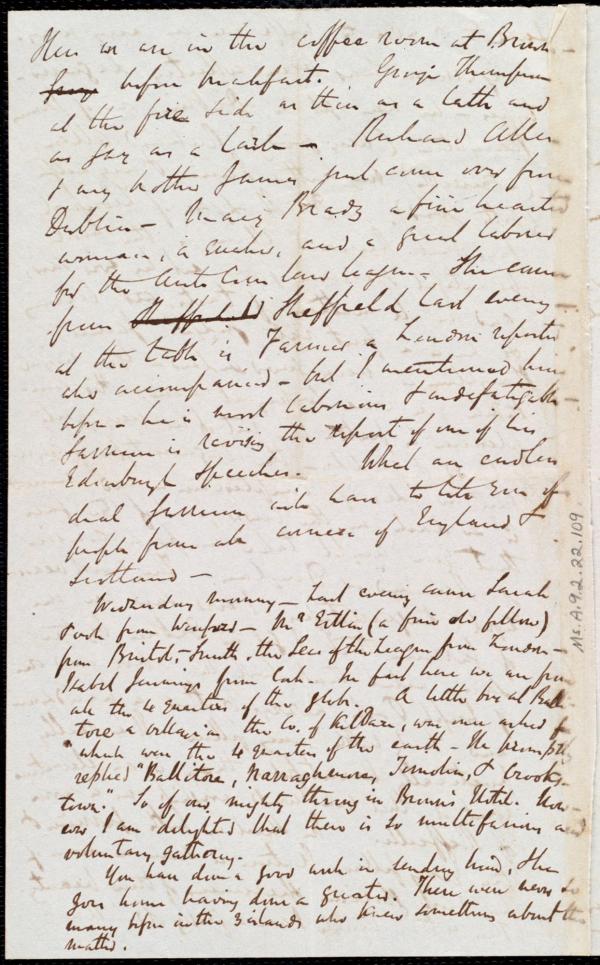 Here we are in the coffee room at Brown
before breakfast. George Thompson
at the fire side as thin as a lath and
as gay as a lark - Richard Allen
& my brother James just come over from
Dublin - Mary Brady a fine hearted
woman, a Quaker, and a great laborer
for the Anti Corn law league - She came
from Sheffield last evening -
at the table is Farmer a London reporter
who accompanied - but I mentioned him
before - he is most laborious & indefatigable -
is revising the report of one of his
Edinburgh speeches. What an endless
deal will have to
people from all corners of England &
Scotland -
Wednesday morning - Last evening came Sarah
from - Mr Estlin (a fine old fellow)
from Bristol, - Smith, the Sec of the League from London -
Isabel Jennings from Cork. In fact here we are from
all the 4 quarters of the globe. A little boy at Ball
tore a village in the Co. of Kildare, was once asked
"which were the 4 quarters of the earth - He promptly
replied "Ballitore, Narraghmore, Timolin, & Crooks-
town." So of our mighty throng in Brown's Hotel. How-
ever, I am delighted that there is so multifarious and
voluntary gathering.
You have done a good work in sending him, She
goes home having done a greater. There were never so
many before in the 3 islands who knew something about the
matter.
Ms. A.9.2.22.109